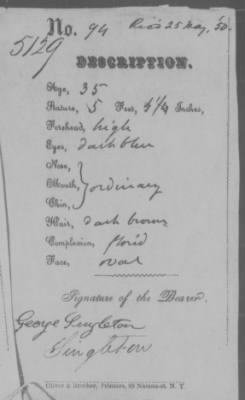 No. 94 Rec'd 25 May, '50.
5129
DESCRIPTION.
Age, 35
Stature, 5 Feet, 4 1/4 Inches,
Forehead, high
Eyes, dark blue
Nose,
Mouth, } ordinary
Chin,
Hair, dark brown
Complexion, florid
Face, oval
Signature of the Bearer.
George Singleton
Singleton
Oliver & Brother, Printers, 89 Nassau-st. N. Y.